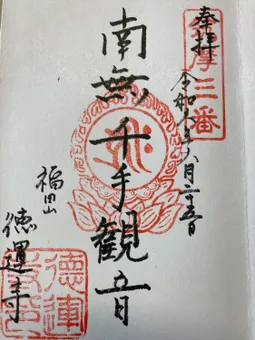 奉拝
筑摩三番
令和六年六月二十五日
南無千手観音
福田山
徳運寺
德運